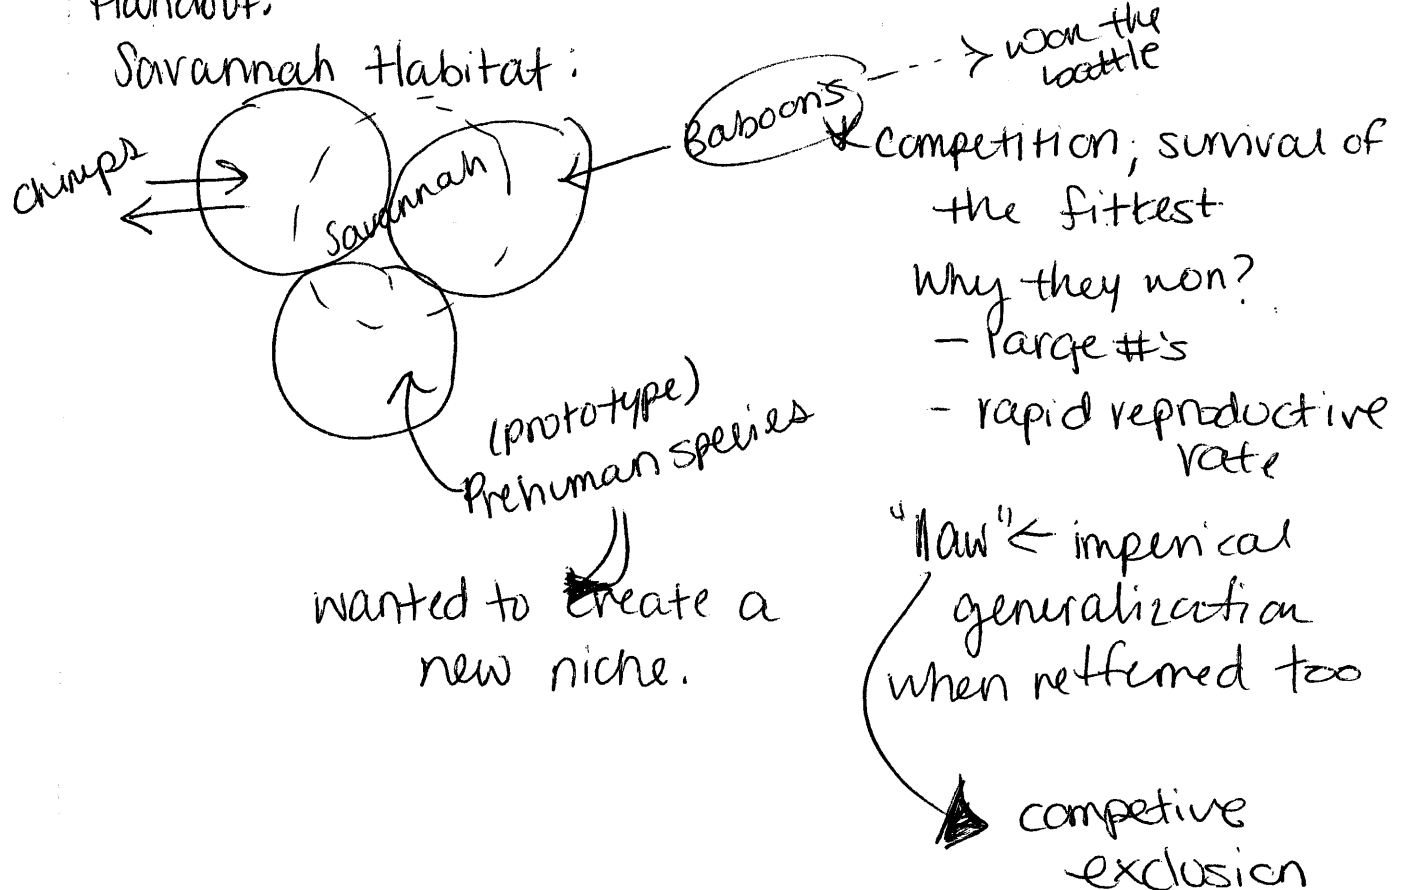 Handout:
Savannah Habitat:
chimps
Savannah
Baboons
won the
battle
competition; survival of
the fittest
Why they won?
- large #'s
- rapid reproductive
rate
(prototype)
Prehuman species
wanted to create a
new niche.
"law" ← imperical
generalization
when refferred too
competive
exclusion